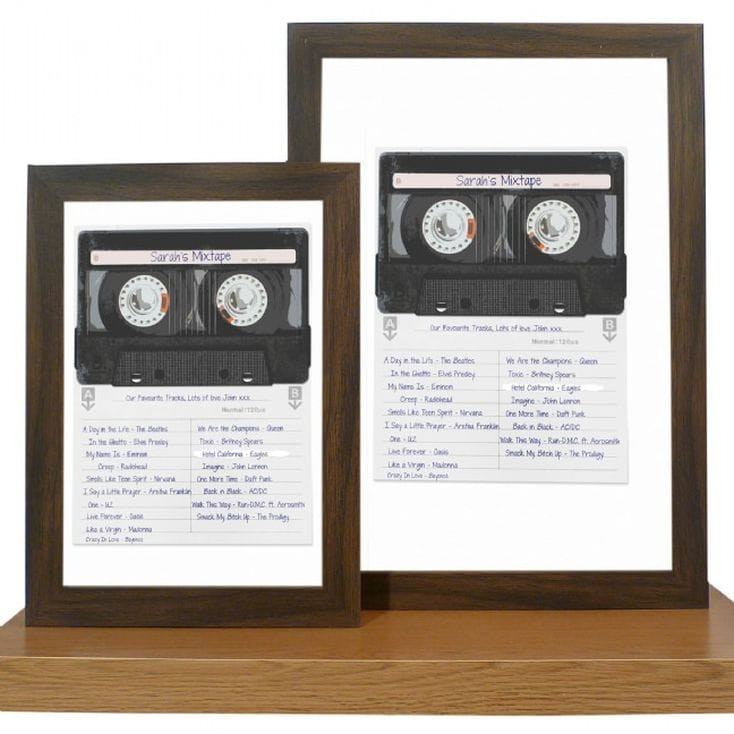 Sarah's Mixtape
A
B
Our Favourite Tracks, Lots of love John xxx
Normal/120us
A Day in the Life - The Beatles
In the Ghetto - Elvis Presley
My Name Is - Eminem
Creep - Radiohead
Smells Like Teen Spirit - Nirvana
I Say a Little Prayer - Aretha Franklin
One - U2
Live Forever - Oasis
Like a Virgin - Madonna
Crazy In Love - Beyonce
We Are the Champions - Queen
Toxic - Britney Spears
Hotel California - Eagles
Imagine - John Lennon
One More Time - Daft Punk
Back in Black - AC/DC
Walk This Way - Run-D.M.C. ft. Aerosmith
Smack My Bitch Up - The Prodigy
B
Sarah's Mixtape
A
B
Our Favourite Tracks, Lots of love John xxx
Normal/120us
A Day in the Life - The Beatles
In the Ghetto - Elvis Presley
My Name Is - Eminem
Creep - Radiohead
Smells Like Teen Spirit - Nirvana
I Say a Little Prayer - Aretha Franklin
One - U2
Live Forever - Oasis
Like a Virgin - Madonna
Crazy In Love - Beyonce
We Are the Champions - Queen
Toxic - Britney Spears
Hotel California - Eagles
Imagine - John Lennon
One More Time - Daft Punk
Back in Black - AC/DC
Walk This Way - Run-D.M.C. ft. Aerosmith
Smack My Bitch Up - The Prodigy